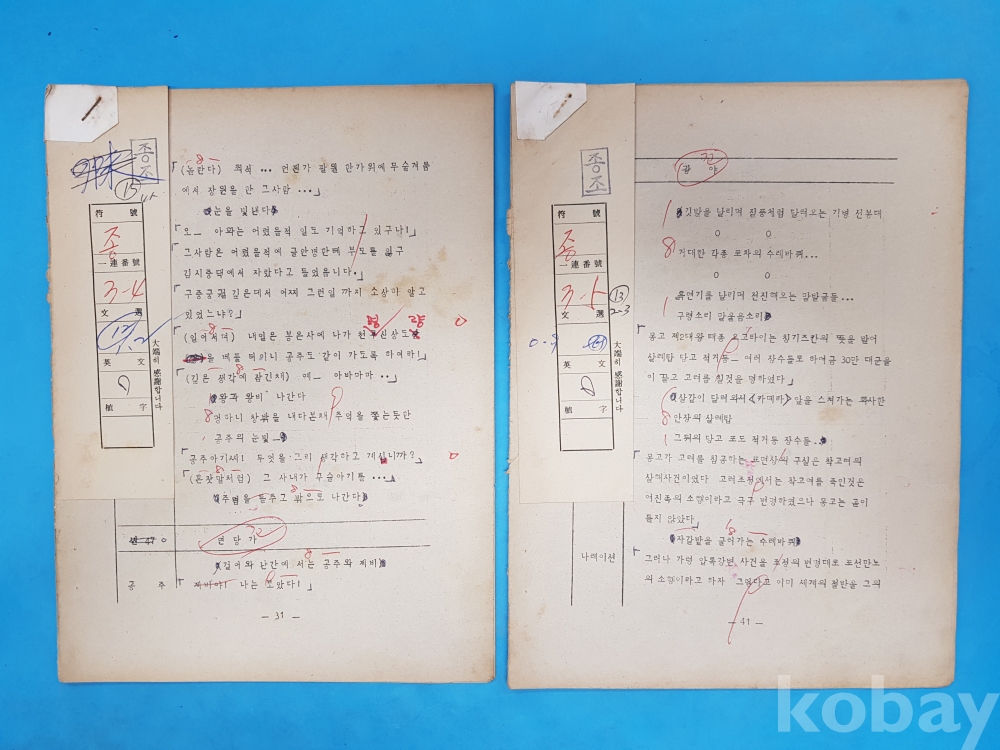 종조
15
符號
종
一連番號
3-4
文選
英文
植字
大端히 感謝합니다
「(논란다) 뭐석 ... 언젠가 팔월 한가위에 무술겨룸
에서 장원을 한 그사람 ...」
눈을 빛낸다
오— 아화는 어렸을적 일도 기억하고 있구나!」
「그사람은 어렸을적에 글안병란때 부모를 잃구
김시중댁에서 자랐다고 들었읍니다.」
구중궁궐 깊은데서 어찌 그런일 까지 소상히 알고
있었느냐?」
「(일어서며) 내일은 봉은사에 나가
를 베풀 터이니 공주도 같이 가도록 하여라!」
「(깊은 생각에 잠긴채) 예— 아바마마..」
왕과 왕비 나간다
멍하니 창밖을 내다본채 추억을 쫓는듯한
공주의 눈빛—
「공주아기씨! 무엇을 그리 생각하고 계십니까?」
「(혼잣말처럼) 그 사내가 무술아기를—
주렴을 들추고 밖으로 나간다
씬 47
연당가
걸어와 난간에 서는 공주와 제비
공 주 「제비야! 나는 보았다!」
— 31 —
종조
符號
종
一連番號
3-5
文選
英文
植字
大端히 感謝합니다
13
(광 야)
깃발을 날리며 질풍처럼 달려오는 기병 선봉대
거대한 각종 포차의 수레바퀴...
흙연기를 날리며 전진해오는 말발굽들...
구령소리 말울음소리
「몽고 제2대왕 태종 오고타이는 칭기즈칸의 뜻을 받어
살례탑 당고 적거등— 여러 장수들로 하여금 30만 대군을
이 끌고 고려를 칠것을 명하였다」
살같이 달려와서 《카메라》 앞을 스쳐가는 화사한
안장의 살례탑
그뒤의 당고 포도 적거등 장수들..
「몽고가 고려를 침공하는 표면상의 구실은 착고여의
살해사건이었다 고려조정에서는 착고여를 죽인것은
여진족의 소행이라고 극구 변명하였으나 몽고는 곧이
듣지 않았다」
자갈밭을 굴러가는 수레바퀴
나레이션 「그러나 가령 압록강변 사건을 조정의 변명대로 포선만노
의 소행이라고 하자 그렇다고 이미 세계의 절반을 그의
— 41 —
kobay